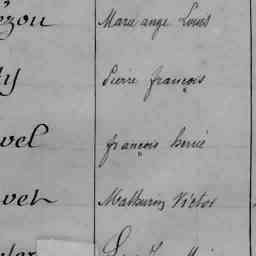 ezou Marie ange Louis
y Pierre françois
vel françois hervé
vet Mathurin Victor